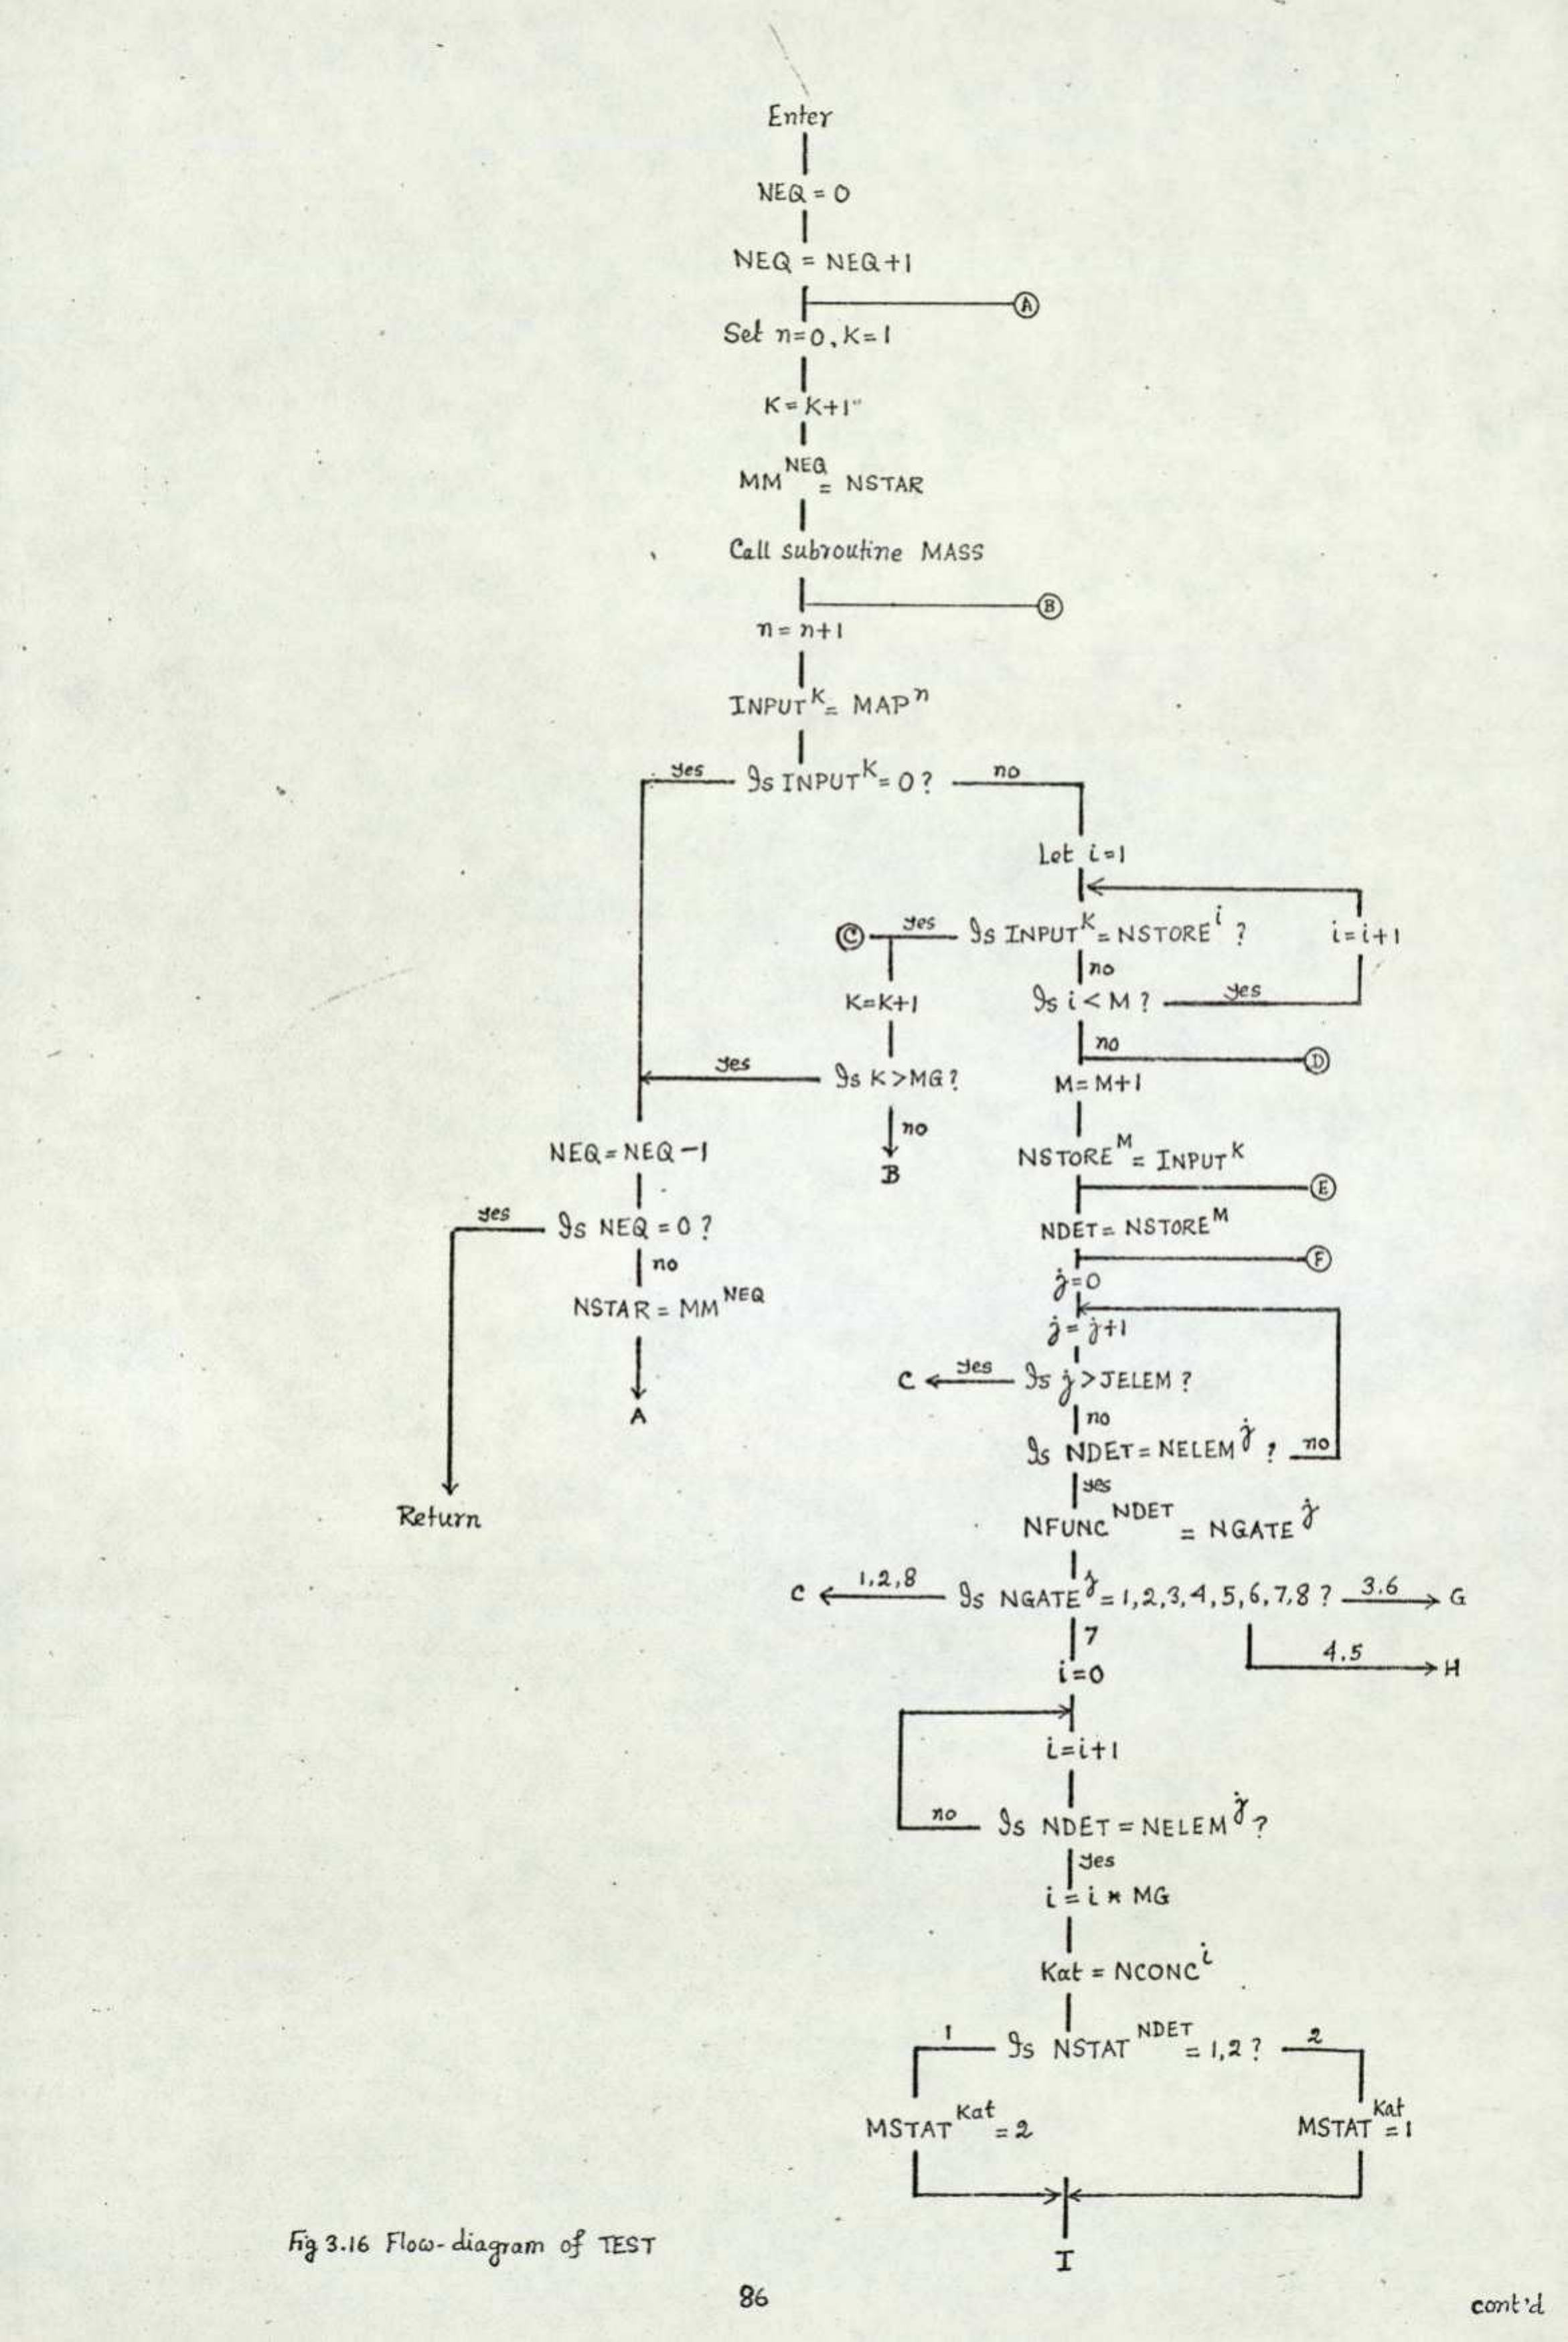 Enter
NEQ = 0
NEQ = NEQ+1
A
Set n=0, K=1
K=K+1
MM^NEQ = NSTAR
Call subroutine MASS
B
n = n+1
INPUT^K = MAP^n
yes Is INPUT^K = 0 ? no
Let i=1
C yes Is INPUT^K = NSTORE^i ? i=i+1
no
K=K+1 Is i < M ? yes
no D
yes Is K > MG ? M = M+1
no
NEQ = NEQ -1 NSTORE^M = INPUT^K
B
E
yes Is NEQ = 0 ? NDET = NSTORE^M
no F
j=0
NSTAR = MM^NEQ
j = j+1
C yes Is j > JELEM ?
A no
Is NDET = NELEM^j ? no
yes
Return NFUNC^NDET = NGATE^j
C 1,2,8 Is NGATE^j = 1,2,3,4,5,6,7,8 ? 3.6 G
7 4.5 H
i=0
i=i+1
no Is NDET = NELEM^j ?
yes
i = i * MG
Kat = NCONC^i
1 Is NSTAT^NDET = 1,2 ? 2
MSTAT^Kat = 2 MSTAT^Kat = 1
I
Fig 3.16 Flow-diagram of TEST
86
cont'd